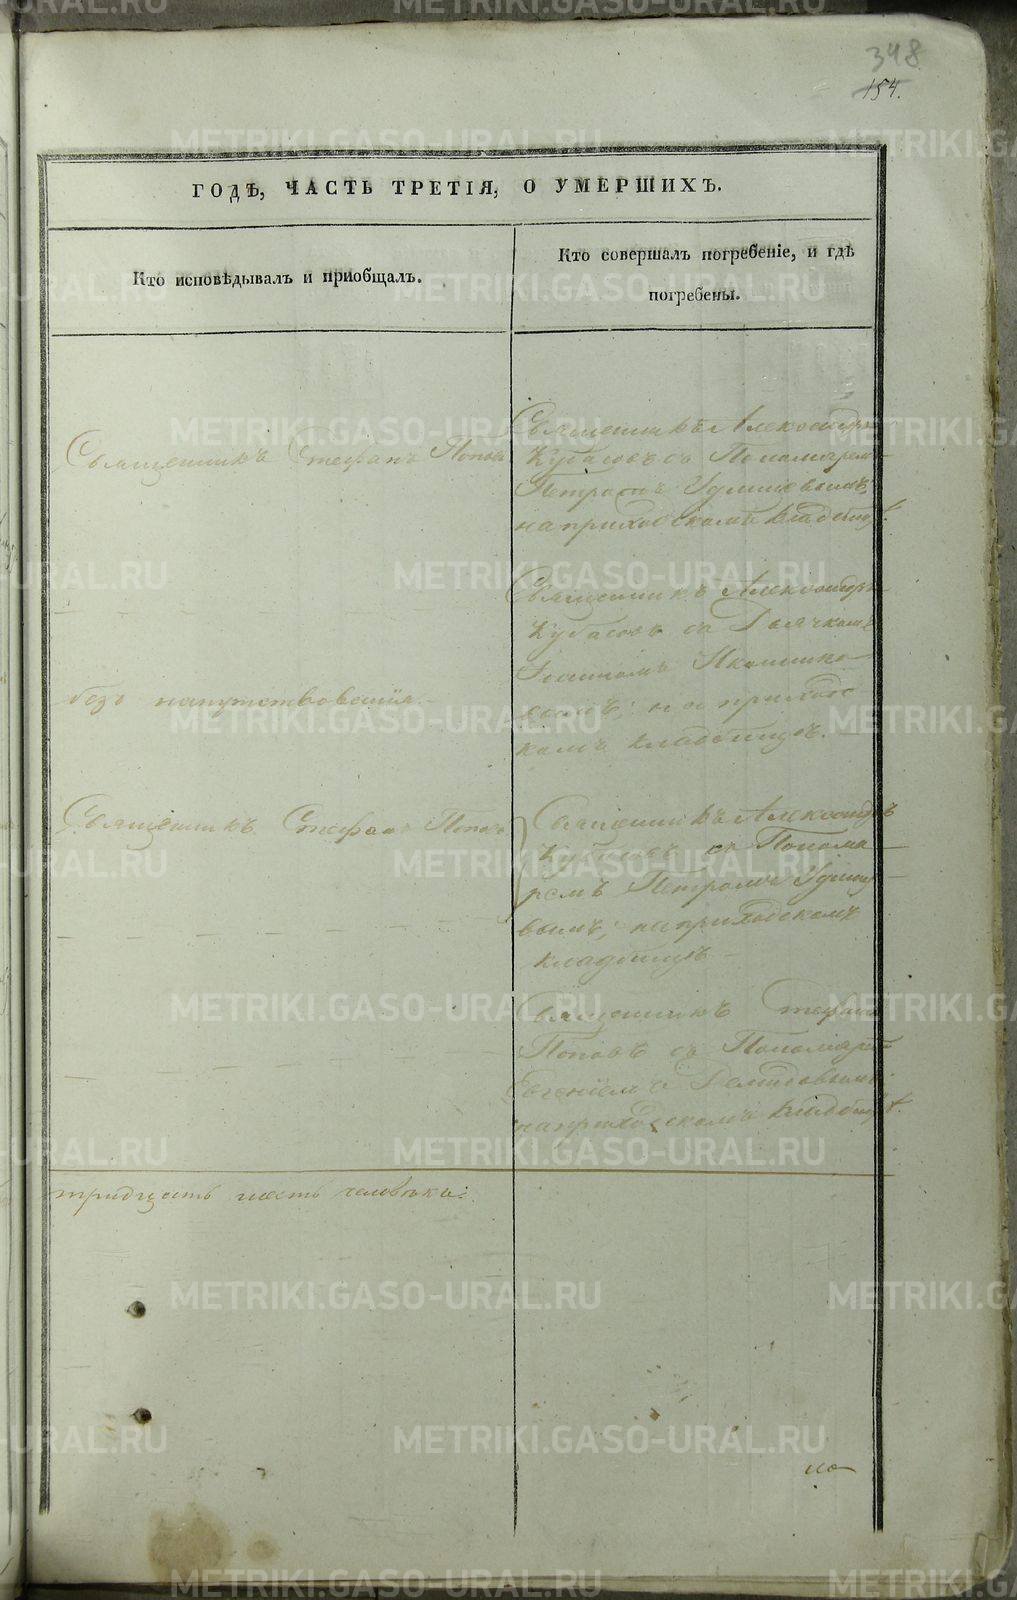 348
154.
ГОДѢ, ЧАСТЬ ТРЕТІЯ, О УМЕРШИХЪ.
Кто исповѣдывалъ и приобщалъ.
Кто совершалъ погребеніе, и гдѣ
погребены.
Священникъ Стефанъ Поповъ
Священникъ Александръ
Кубасовъ съ Пономаремъ
Петромъ
на приходскомъ кладбищѣ.
без напутствованія.
Священникъ Александръ
Кубасовъ съ Дьячкомъ
Іоанномъ
вымъ; на приходс
комъ кладбищѣ.
Священникъ Стефанъ Поповъ
Священникъ Александръ
Кубасовъ съ Понома
ремъ Петромъ
вымъ; на приходскомъ
кладбищѣ
Священникъ Стефанъ
Поповъ съ Пономаремъ
Евгеніемъ Демидовымъ
на приходскомъ кладбищѣ.
тридцать шесть человѣкъ.
METRIKI.GASO-URAL.RU